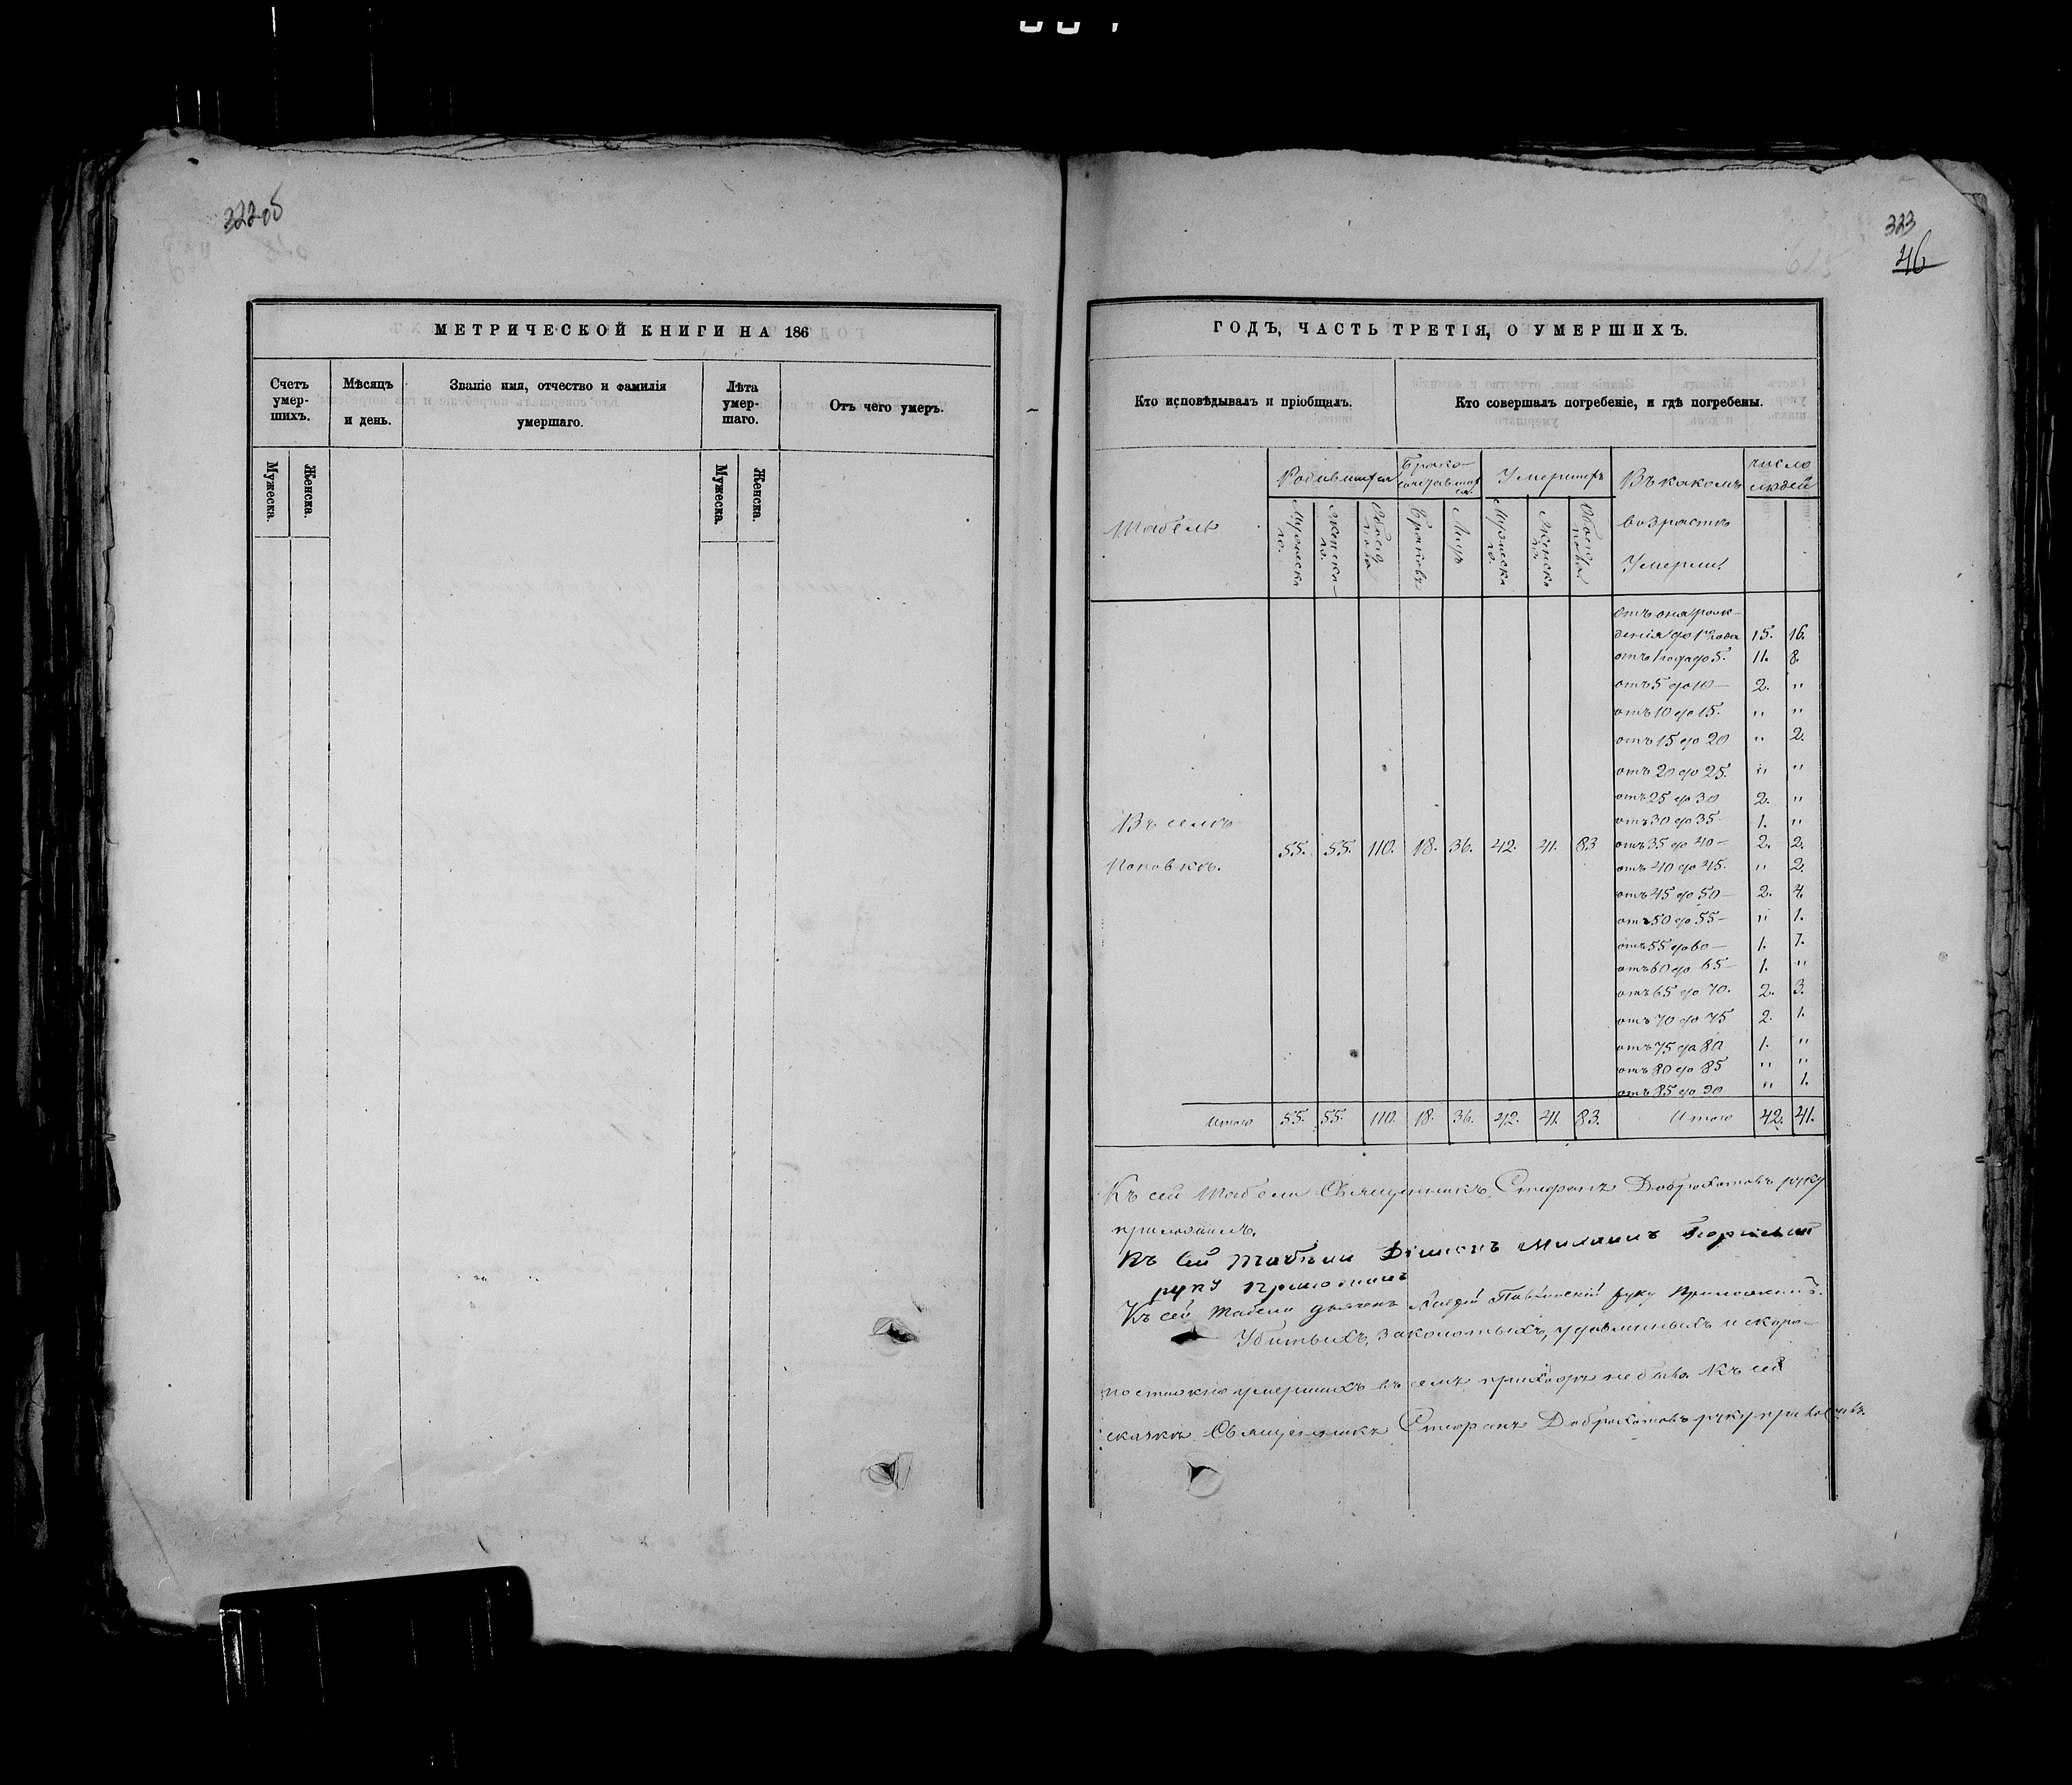 322об
МЕТРИЧЕСКОЙ КНИГИ НА 186
Счетъ умер-шихъ.
Мѣсяцъ и день.
Званіе имя, отчество и фамилія умершаго.
Лѣта умер-шаго.
Отъ чего умеръ.
Мужеска.
Женска.
Мужеска.
Женска.
323
46
ГОДЪ, ЧАСТЬ ТРЕТІЯ, О УМЕРШИХЪ.
Кто исповѣдывалъ и пріобщалъ.
Кто совершалъ погребеніе, и гдѣ погребены.
Табель
Родившихся
Брако-сочетавших ся.
Умершихъ
Въ какомъ возрастѣ Умерли.
число людей
Мужеска го.
Женска го.
Обоего пола
Браковъ
Лицъ
Мужеска го.
Женска го.
Обоего пола
отъ дня рож-
денія до 1 года 15. 16.
отъ 1 года до 5. 11. 8.
отъ 5 до 10 — 2. "
отъ 10 до 15. " "
отъ 15 до 20 " 2.
отъ 20 до 25. " "
отъ 25 до 30 2. "
отъ 30 до 35 — 1. "
Въ селѣ
Поповкѣ. 55. 55. 110. 18. 36. 42. 41. 83
отъ 35 до 40 — 2. 2.
отъ 40 до 45. " 2.
отъ 45 до 50 — 2. 4.
отъ 50 до 55 — " 1.
отъ 55 до 60 — 1. 1.
отъ 60 до 65 — 1. "
отъ 65 до 70. 2. 3.
отъ 70 до 75 2. 1.
отъ 75 до 80 1. "
отъ 80 до 85 " "
отъ 85 до 90 " 1.
Итого 55. 55. 110. 18. 36. 42. 41. 83. Итого 42. 41.
Къ сей Табели Священникъ Стефанъ Доброхотовъ руку
приложилъ.
Къ сей табели Діаконъ
руку приложилъ
Къ сей табели дьячекъ руку приложилъ.
Убитыхъ, заколотыхъ, удавленныхъ и скоро-
постижно умершихъ въ семъ приходѣ не было. Къ сей
сказкѣ Священникъ Стефанъ Доброхотовъ руку приложилъ.